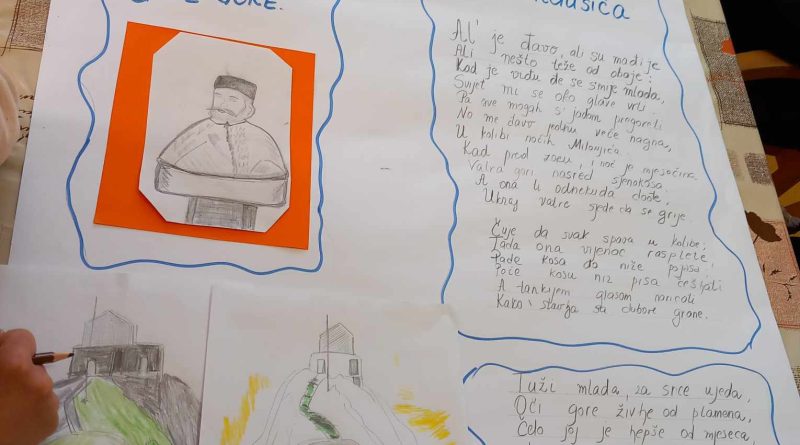 GORE.
Al' je đavo, ali su mađije
Ali nešto teže od obaje;
Kad je viđu đe se smije mlada,
Svijet mi se oko glave vrti
Pa sve mogah s jadom pregoreti
No me đavo jednu veče nagna,
U kolibi noćih Milonjića.
Kad pred zoru, i noć je mjesečina
Vatra gori nasred sjenokosa
A ona ti odnekuda dođe,
Ukraj vatre sjede da se grije.
Čuje da svak spava u kolibe;
Tada ona vijenac rasplete
Pade kosa do niže pojasa;
Poče kosu niz prsa češljati
A tankijem glasom naricati
Kako slavlja sa dubove grane.
Tuži mlada, za srce ujeda,
Oči gore življe od plamena,
Čelo joj je ljepše od mjeseca,